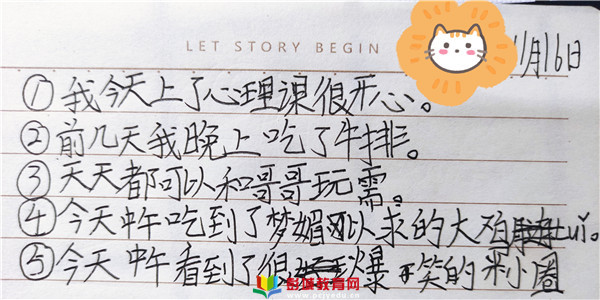 LET STORY BEGIN
11月16日
①我今天上了心理课很开心。
②前几天我晚上吃了牛排。
③天天都可以和哥哥玩需。
④今天中午吃到了梦媚以求的大鸡tuǐ。
⑤今天中午看到了很爆笑的米小圈
彭城教育网
www.pejyedu.cn